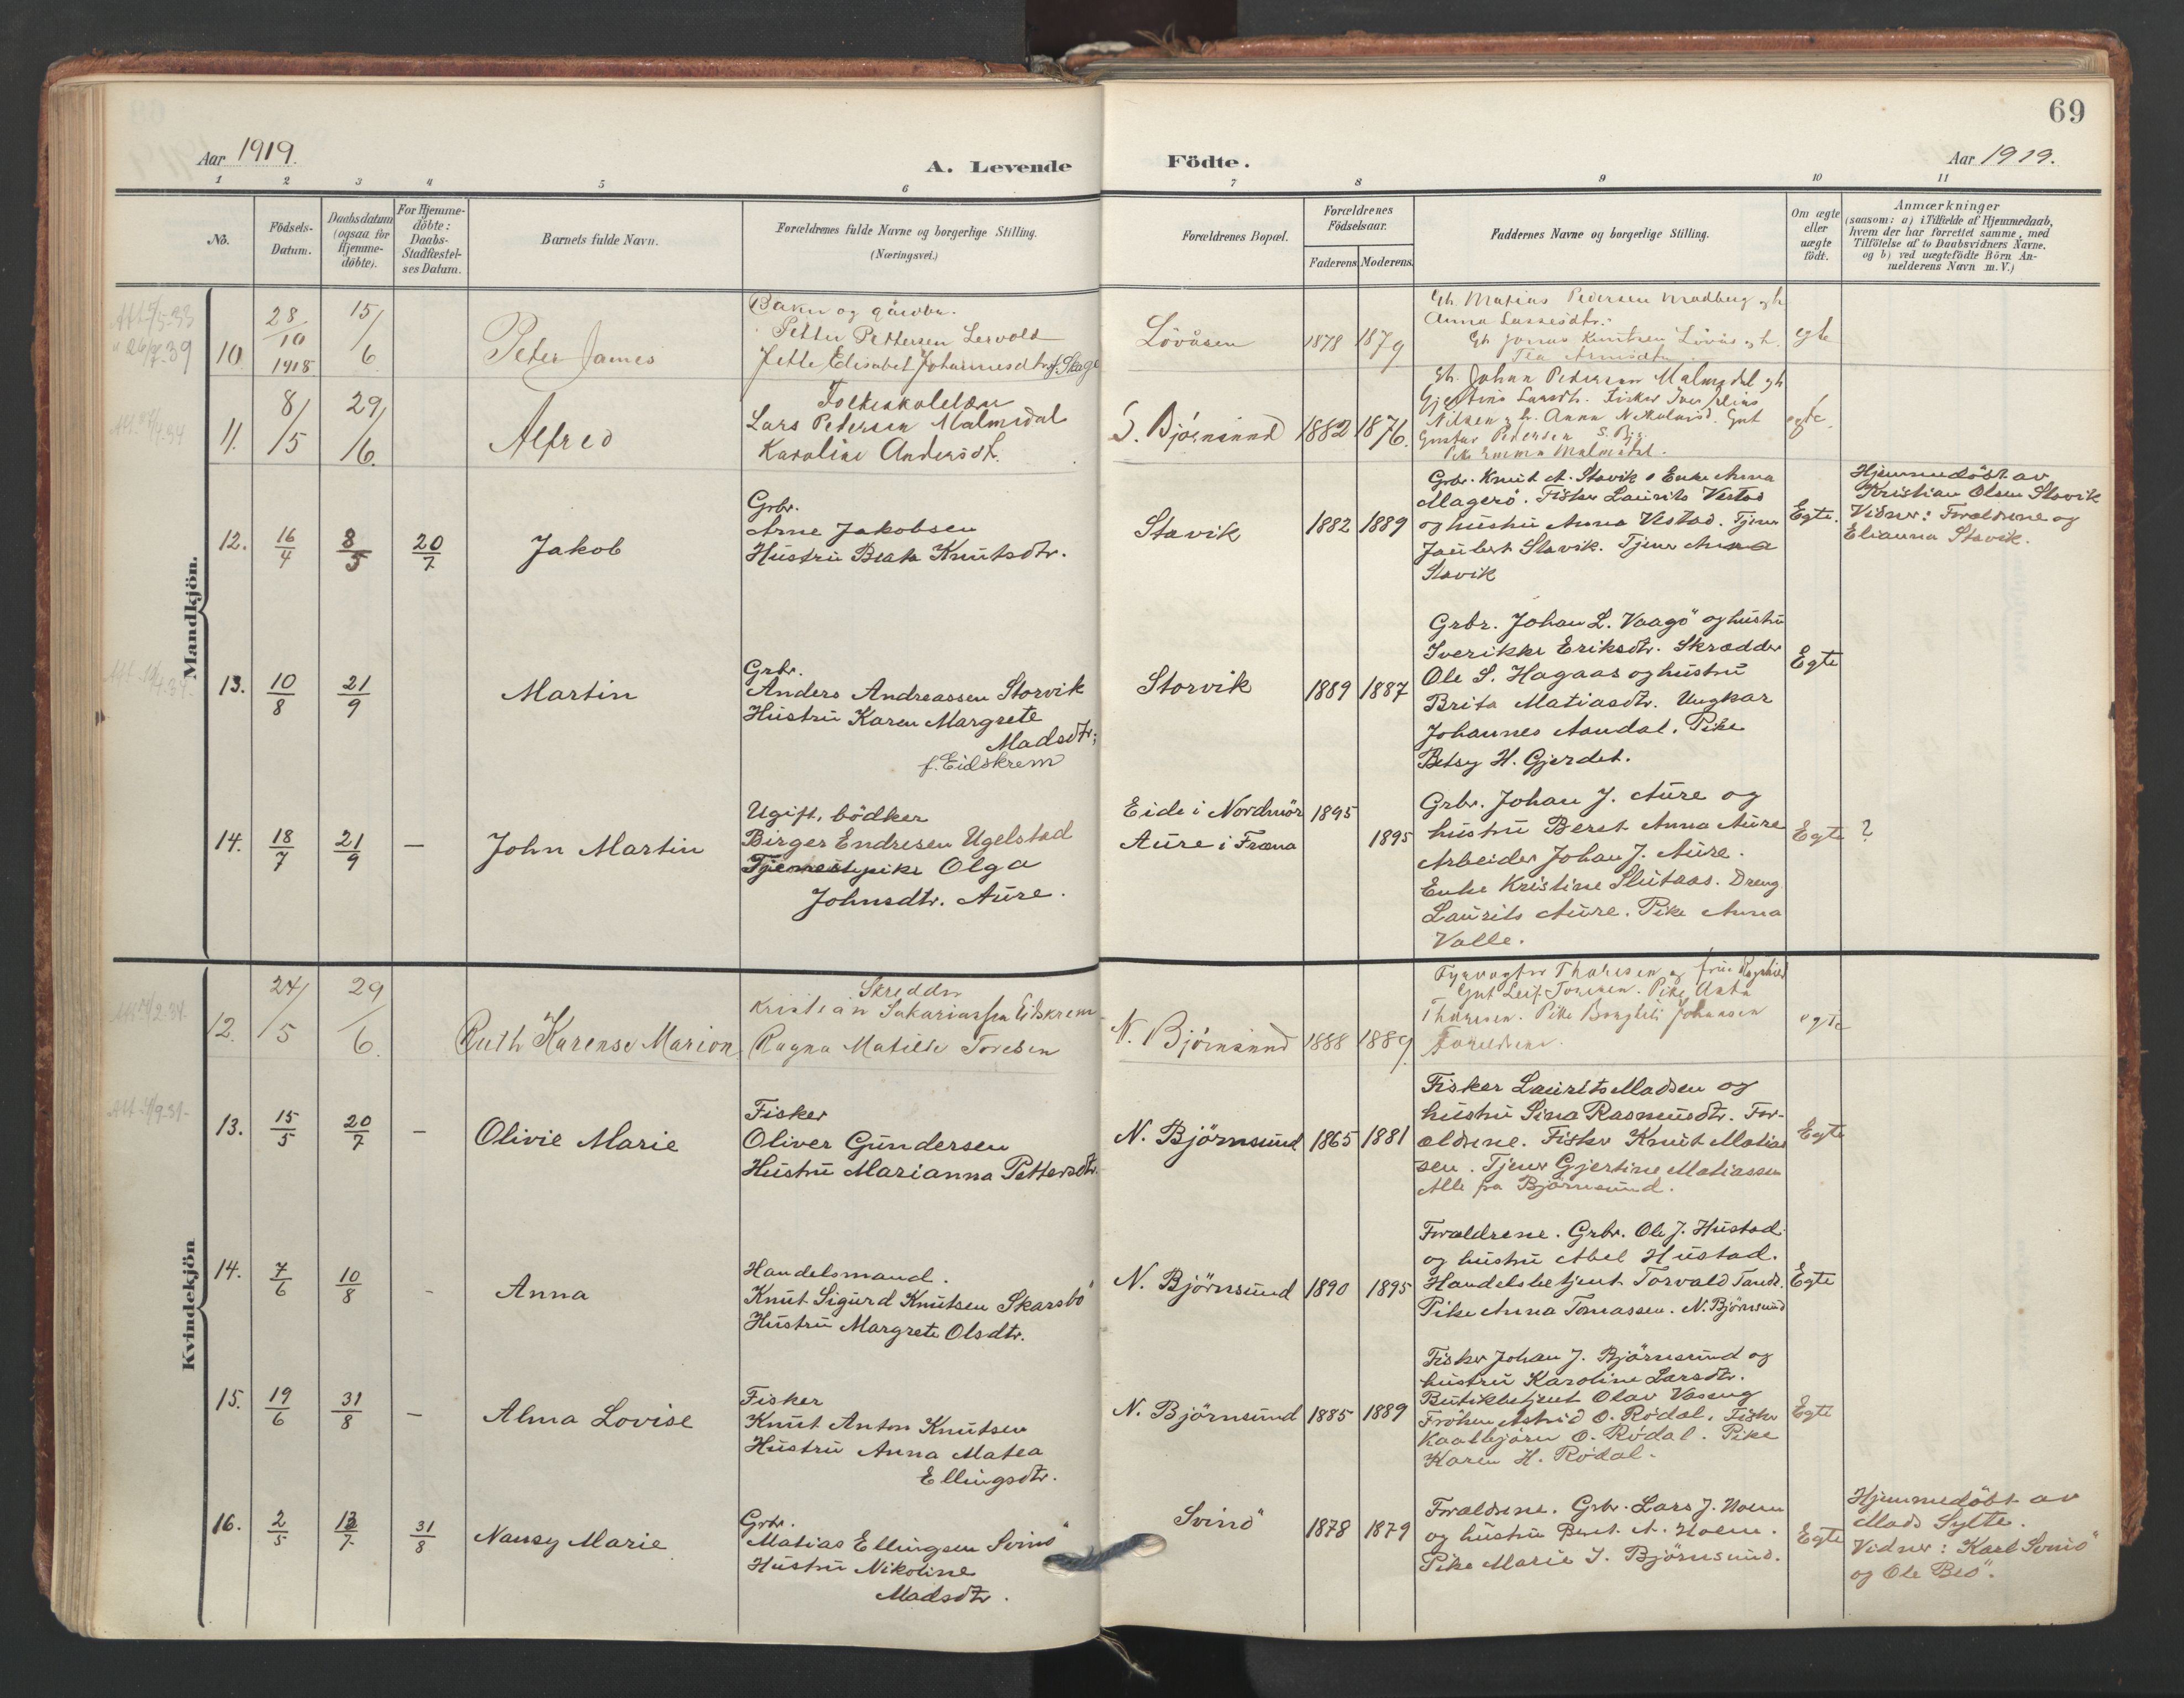 69
Aar 1919.
A. Levende Födte.
Aar 1919.
1 2 3 4 5 6 7 8 9 10 11
No.
Födsels-Datum.
Daabsdatum (ogsaa for Hjemme-döbte).
For Hjemme-döbte: Daabs-Stadfæstel-ses Datum.
Barnets fulde Navn.
Forældrenes fulde Navne og borgerlige Stilling.
(Næringsvei.)
Forældrenes Bopæl.
Forældrenes Födselsaar.
Faderens. Moderens.
Faddernes Navne og borgerlige Stilling.
Om ægte eller uægte födt.
Anmærkninger
(saasom: a) i Tilfælde af Hjemmedaab,
hvem der har forrettet samme, med
Tilföielse af to Daabsvidners Navne.
og b) ved uægtefödte Börn An-
melderens Navn m. V.)
Mandkjön.
10. 28/10 1918 15/6
Peter James
Petter Pettersen Lervold
Jette Elisabet Johannesdtr. f. Skage
Lövåsen
1878 1879
Gh. Matias Pedersen
Anna Lassesdtr.
egte
11. 8/5 29/6.
Alfred
Folkeskolelærer
Lars Petersen Malmedal
Karoline Andersdt.
S. Björnsund
1882 1876.
Gh. Johan Pedersen Malmedal gh
Gustav Pedersen S. Bj.
Pike Emma Malmedal.
egte.
12. 16/4 8/5 20/7
Jakob
Grbr.
Arne Jakobsen
Hustru Beate Knutsdtr.
Stavik
1882 1889
Grbr. Knut A. Stavik o Enke Anna
Magerö. Fisker Laurits Vestad
og hustru Anna Vestad. Tjener
Jaubert Stavik. Tjener Anna
Stavik
Egte.
Hjemmedöbt av
Kristian Olsen Stavik
Vidner: Forældrene og
Elianna Stavik.
13. 10/8 21/9
Martin
Grbr.
Anders Andreassen Storvik
Hustru Karen Margrete
Madsdtr;
f. Eidskrem
Storvik
1889 1887
Grbr. Johan L. Vaagö og hustru
Iverikke Eriksdtr. Skrædder
Ole S. Hagaas og hustru
Brita Matiasdtr. Ungkar
Johannes Aandal. Pike
Betsy H. Gjerdet.
Egte
14. 18/7 21/9 —
John Martin
Ugift, bödker
Birger Endresen Ugelstad
Tjenestepike Olga
Johnsdtr. Aure.
Eide i Nordmör 1895
Aure i Fræna 1895
Grbr. Johan J. Aure og
hustru Beret Anna Aure
Arbeider Johan J. Aure.
Enke Kristine Slutaas. Dreng
Laurits Aure. Pike Anna
Valle.
Egte ?
Kvindekjön
12. 24/5 29/6.
Ruth Karense Marion
Skredder
Kristian Sakariassen Eidskrem
Ragna Matilde Toresen
N. Björnsund
1888 1889
Fyrvogter Thoresen og frue Ragnhild
Gut Leif Toresen. Pike Asta
Thoresen. Pike Johansen
Foreldrene.
egte
13. 15/5 20/7 —
Olivie Marie
Fisker
Oliver Gundersen
Hustru Marianna Pettersdtr.
N. Björnsund
1865 1881
Fisker Laurits Madsen og
hustru Sina Rasmusdtr. For-
ældrene. Fisker Knut Matias
sen. Tjener Gjertine Matiassen
Alle fra Björnsund.
Egte
14. 7/6 10/8 -
Anna
Handelsmand.
Knut Sigurd Knutsen Skarsbö
Hustru Margrete Olsdtr.
N. Björnsund
1890 1895
Forældrene. Grbr. Ole J. Hustad
og hustru Abel Hustad.
Handelsbetjent Torvald Tande.
Pike Anna Tomassen. N. Björnsund
Egte
15. 19/6 31/8 —
Alma Lovise
Fisker
Knut Anton Knutsen
Hustru Anna Matea
Ellingsdtr.
N. Björnsund
1885 1889
Fisker Johan J. Björnsund og
hustru Karoline Larsdtr.
Butikbetjent Olav Vaseng
Fröken Astrid O. Rödal. Fisker
Kaalbjörn O. Rödal. Pike
Karen H. Rödal.
Egte
16. 2/5 13/7 31/8
Nansy Marie
Grbr.
Matias Ellingsen Svinö
Hustru Nikoline
Madsdtr.
Svinö
1878 1879
Forældrene. Grbr. Lars J. Noem
og hustru Beret A. Noem.
Pike Marie J. Björnsund.
Egte
Hjemmedöbt av
Mads Sylte.
Vidner: Karl Svinö
og Ole Bjö.